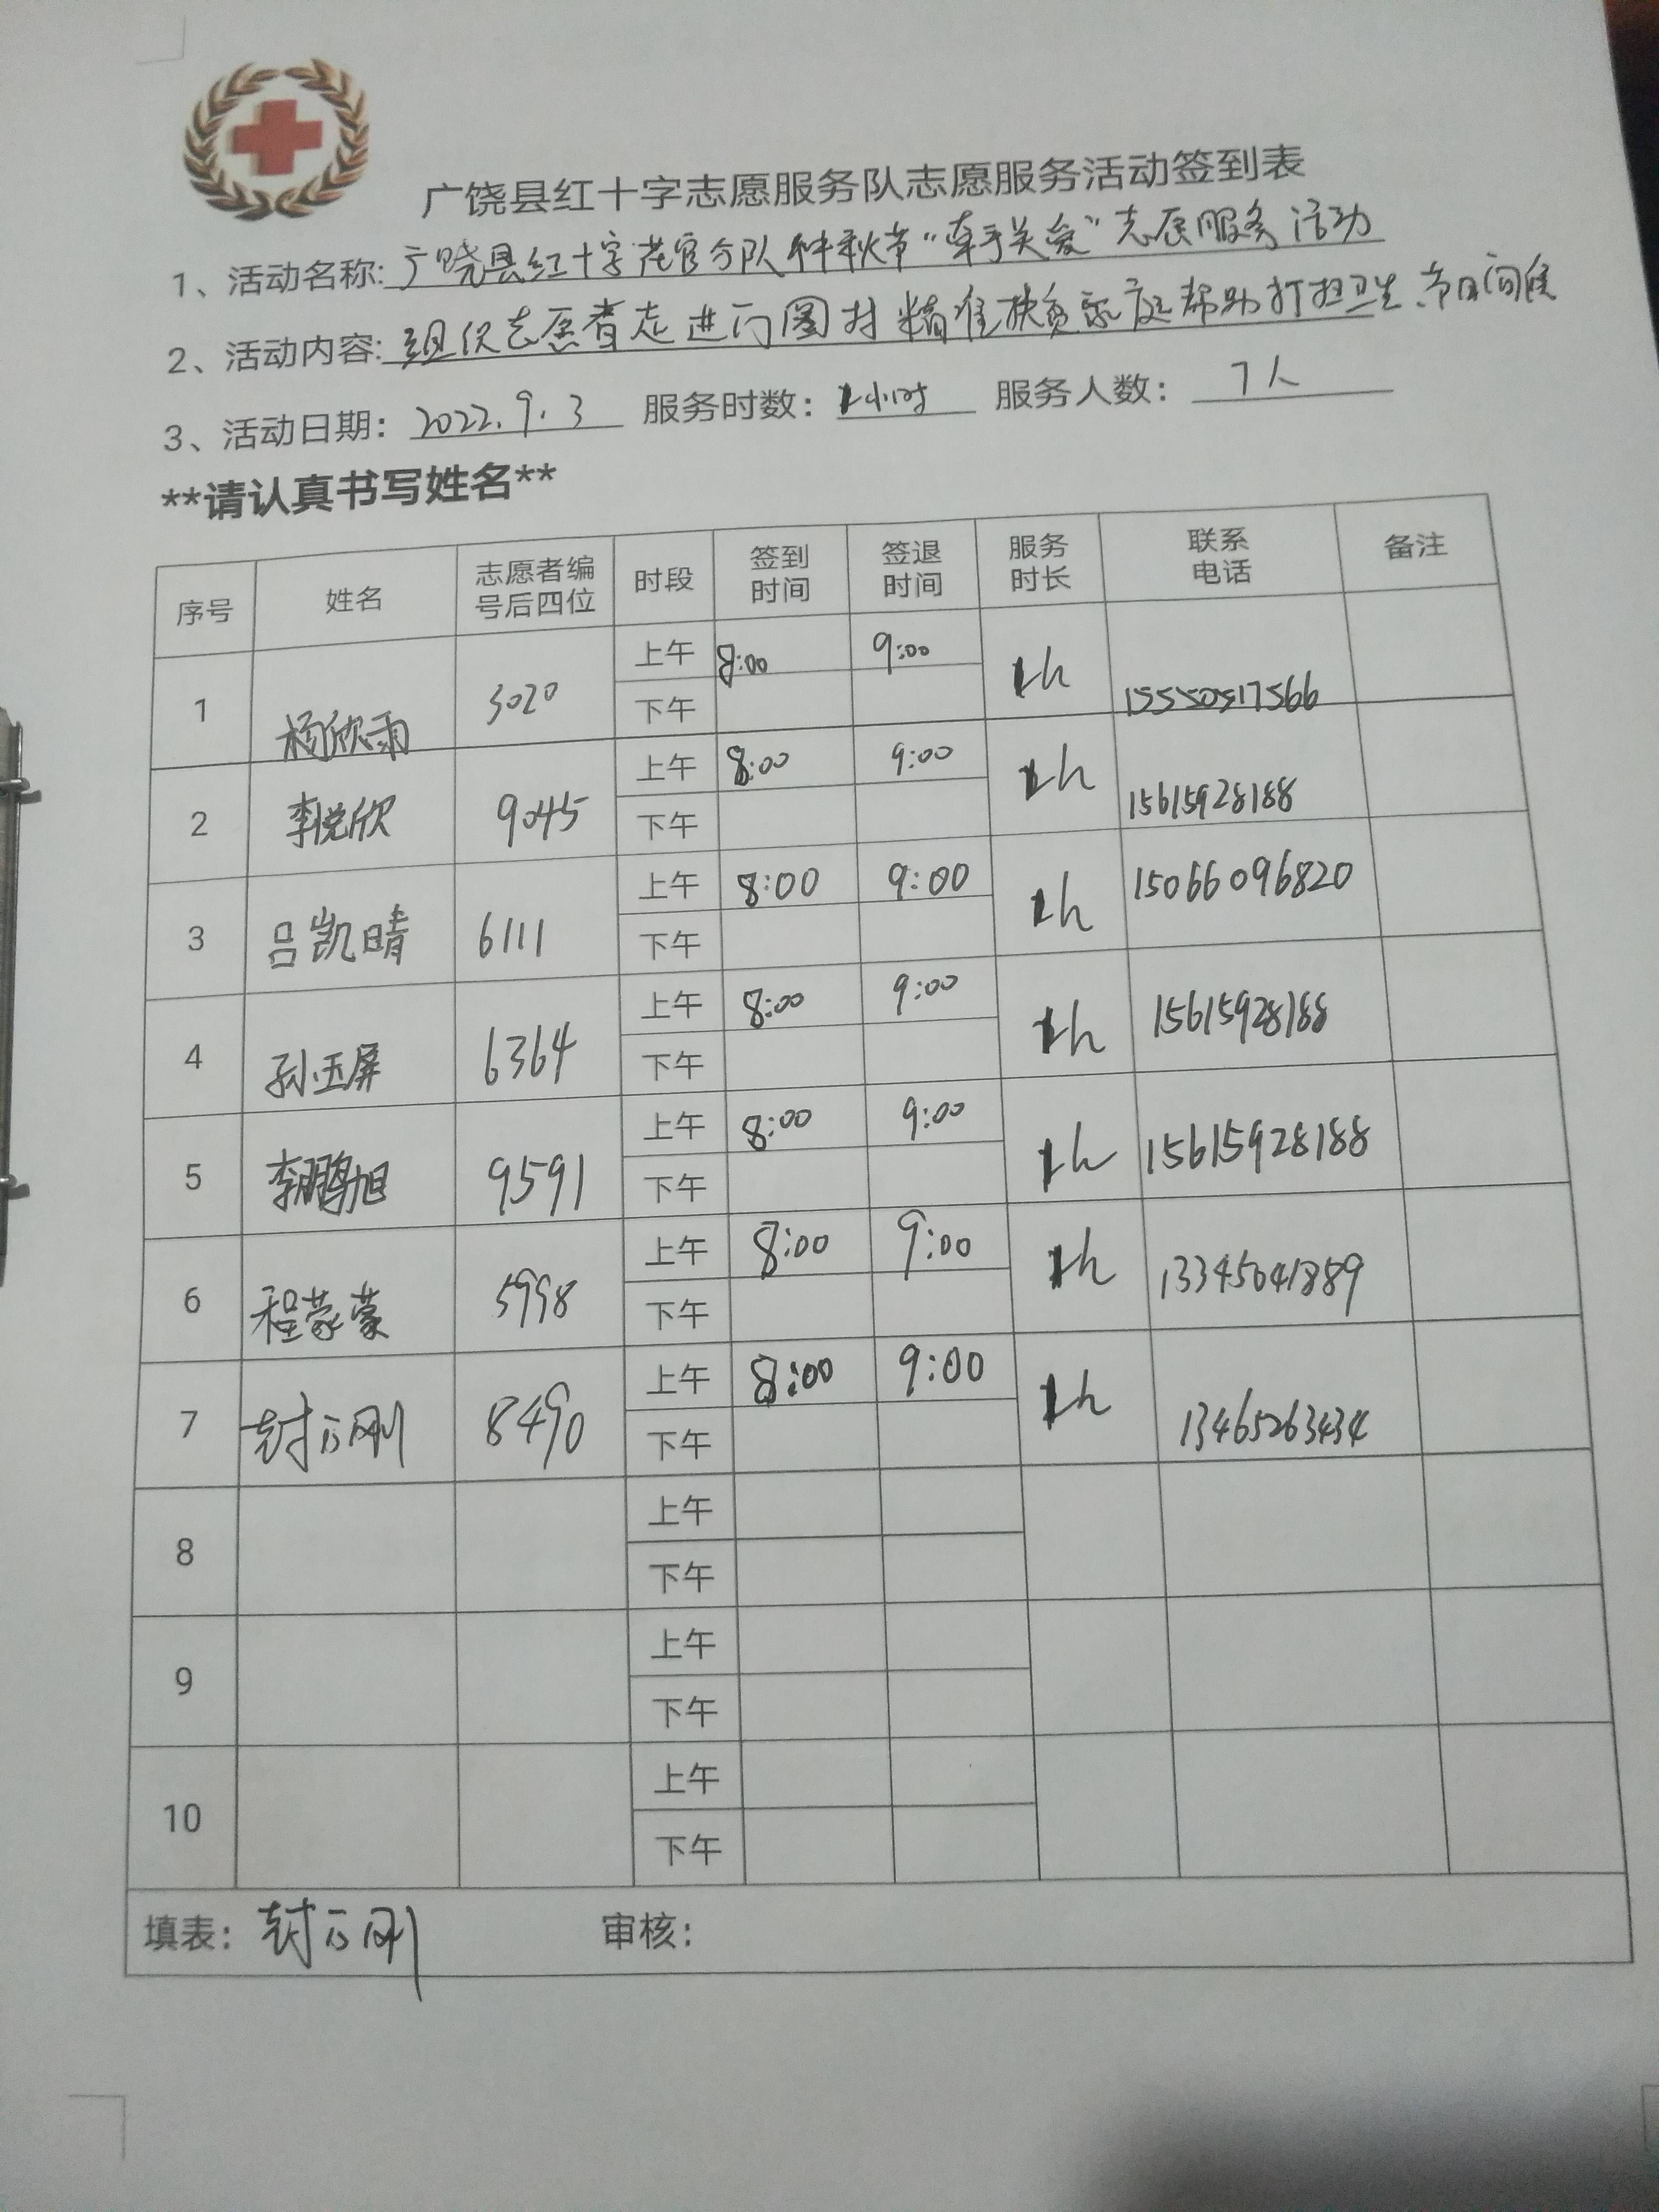 广饶县红十字志愿服务队志愿服务活动签到表
1、活动名称:广饶县红十字花官分队仲秋节“牵手关爱”志愿服务活动
2、活动内容:组织志愿者走进门圈村精准扶贫家庭帮助打扫卫生.节日间候
3、活动日期: 2022.9.3 服务时数: 1小时 服务人数: 7人
**请认真书写姓名**
序号 姓名 志愿者编号后四位 时段 签到时间 签退时间 服务时长 联系电话 备注
1 杨欣雨 3020 上午 8:00 9:00 1h 15550517566
下午
2 李悦欣 9045 上午 8:00 9:00 1h 15615928188
下午
3 吕凯晴 6111 上午 8:00 9:00 1h 15066096820
下午
4 孙玉屏 6364 上午 8:00 9:00 1h 15615928188
下午
5 李鹏旭 9591 上午 8:00 9:00 1h 15615928188
下午
6 程蒙蒙 5998 上午 8:00 9:00 1h 13345041889
下午
7 封刚 8490 上午 8:00 9:00 1h 13465263434
下午
8 上午
下午
9 上午
下午
10 上午
下午
填表: 封刚 审核: